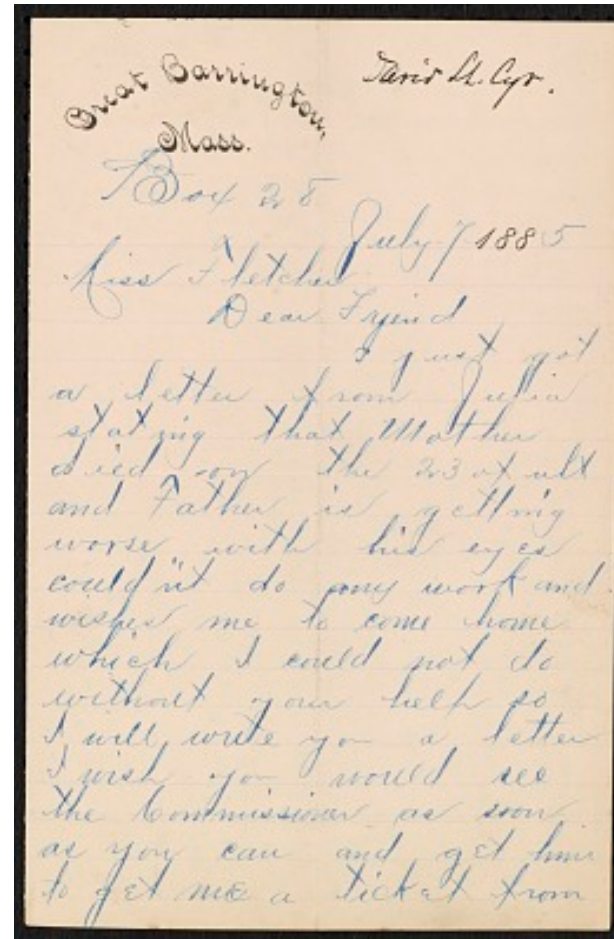 Great Barrington,
Mass.
David St. Cyr.
Box 28
July 7 1885
Miss Fletcher
Dear Friend
I just got
a letter from Julia
stating that Mother
died on the 23 of ult
and Father is getting
worse with his eyes
could'nt do any work and
wishes me to come home
which I could not do
without your help so
I will write you a letter
I wish you would see
the Commissioner as soon
as you can and get him
to get me a ticket from